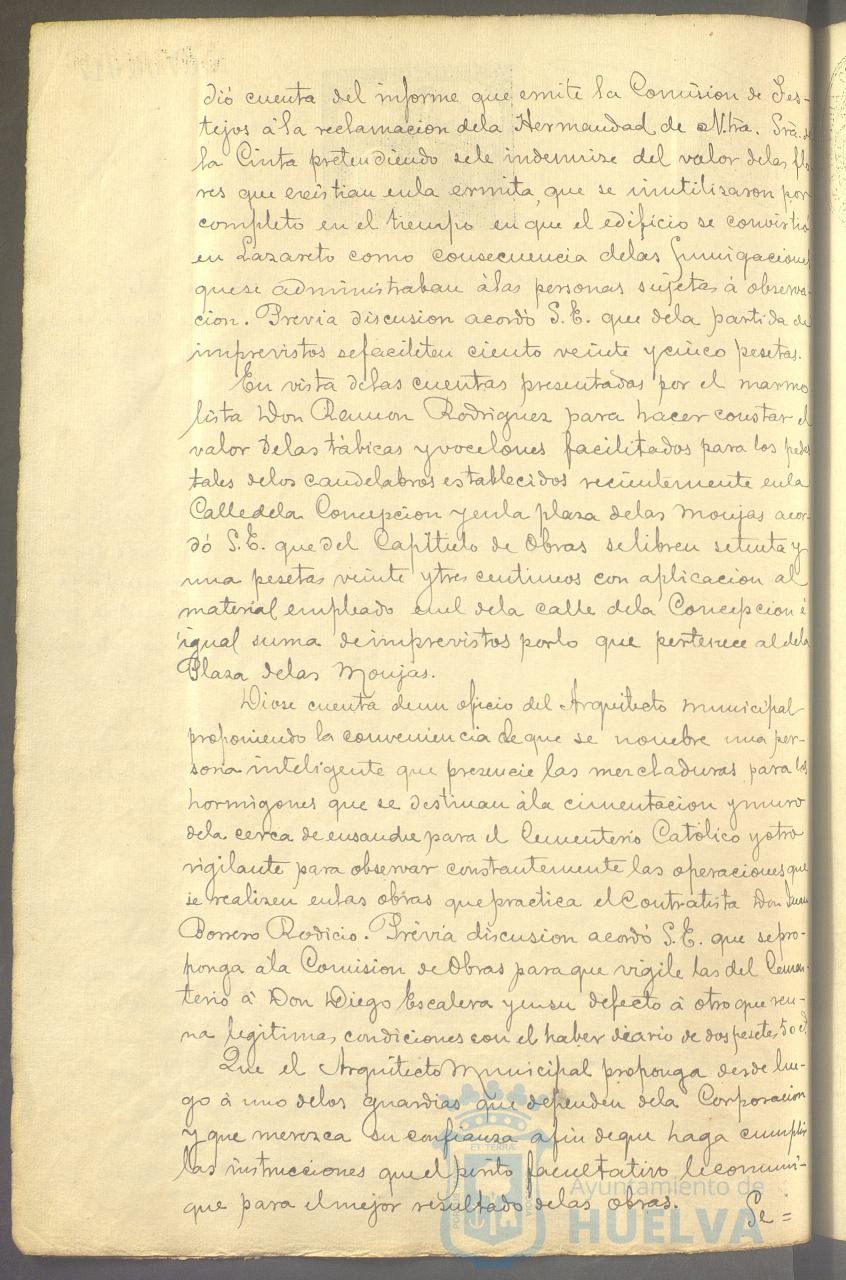 dió cuenta del informe que emite la Comision de Fes-
tejos á la reclamacion dela Hermandad de Ntra. Sra. de
la Cinta pretendiendo sele indemnize del valor delas flo
res que existian enla ermita, que se inutilizaron por
completo en el tiempo en que el edificio se convirtió
en Lazareto como consecuencia delas fumigaciones
quese administraban álas personas sujetas á observa-
cion. Prévia discusion acordó S.E. que dela partida de
imprevistos sefaciliten ciento veinte ycinco pesetas.
En vista delas cuentas presentadas por el marmo
lista Don Ramon Rodriguez para hacer constar el
valor delas tábicas yvocelones facilitados para los pedes
tales delos candelabros establecidos recientemente enla
Calledela Concepcion yenla plaza delas Monjas acor-
dó S.E. que del Capítulo de Obras selibren setenta y
una pesetas veinte ytres centimos con aplicacion al
material empleado enel dela calle dela Concepcion é
igual suma deimprevistos porlo que pertenece aldela
Plaza delas Monjas.
Diose cuenta deun oficio del Arquitecto municipal
proponiendo la conveniencia de que se nombre una per-
sona inteligente que presencie las mezcladuras para los
hormigones que se destinan ála cimentacion ymuro
dela cerca de ensanche para el Cementerio Católico yotro
vigilante para observar constantemente las operaciones que
se realizen enlas obras quepractica elContratista Don Juan
Borrero Rodicio. Prévia discusion acordó S.E. que sepro-
ponga á la Comision de Obras paraque vigile las del Cemen-
terio á Don Diego Escalera yensu defecto á otro que reu-
na legitimas condiciones con el haber diario de dos pesetas 50 ct.
Que el Arquitecto Municipal proponga desde lue-
go á uno delos guardias que dependen dela Corporacion
y que merezca su confianza afin deque haga cumplir
las instrucciones queel perito facultativo lecomuni-
que para elmejor resultado delas obras.
Se=
Ayuntamiento de
HUELVA